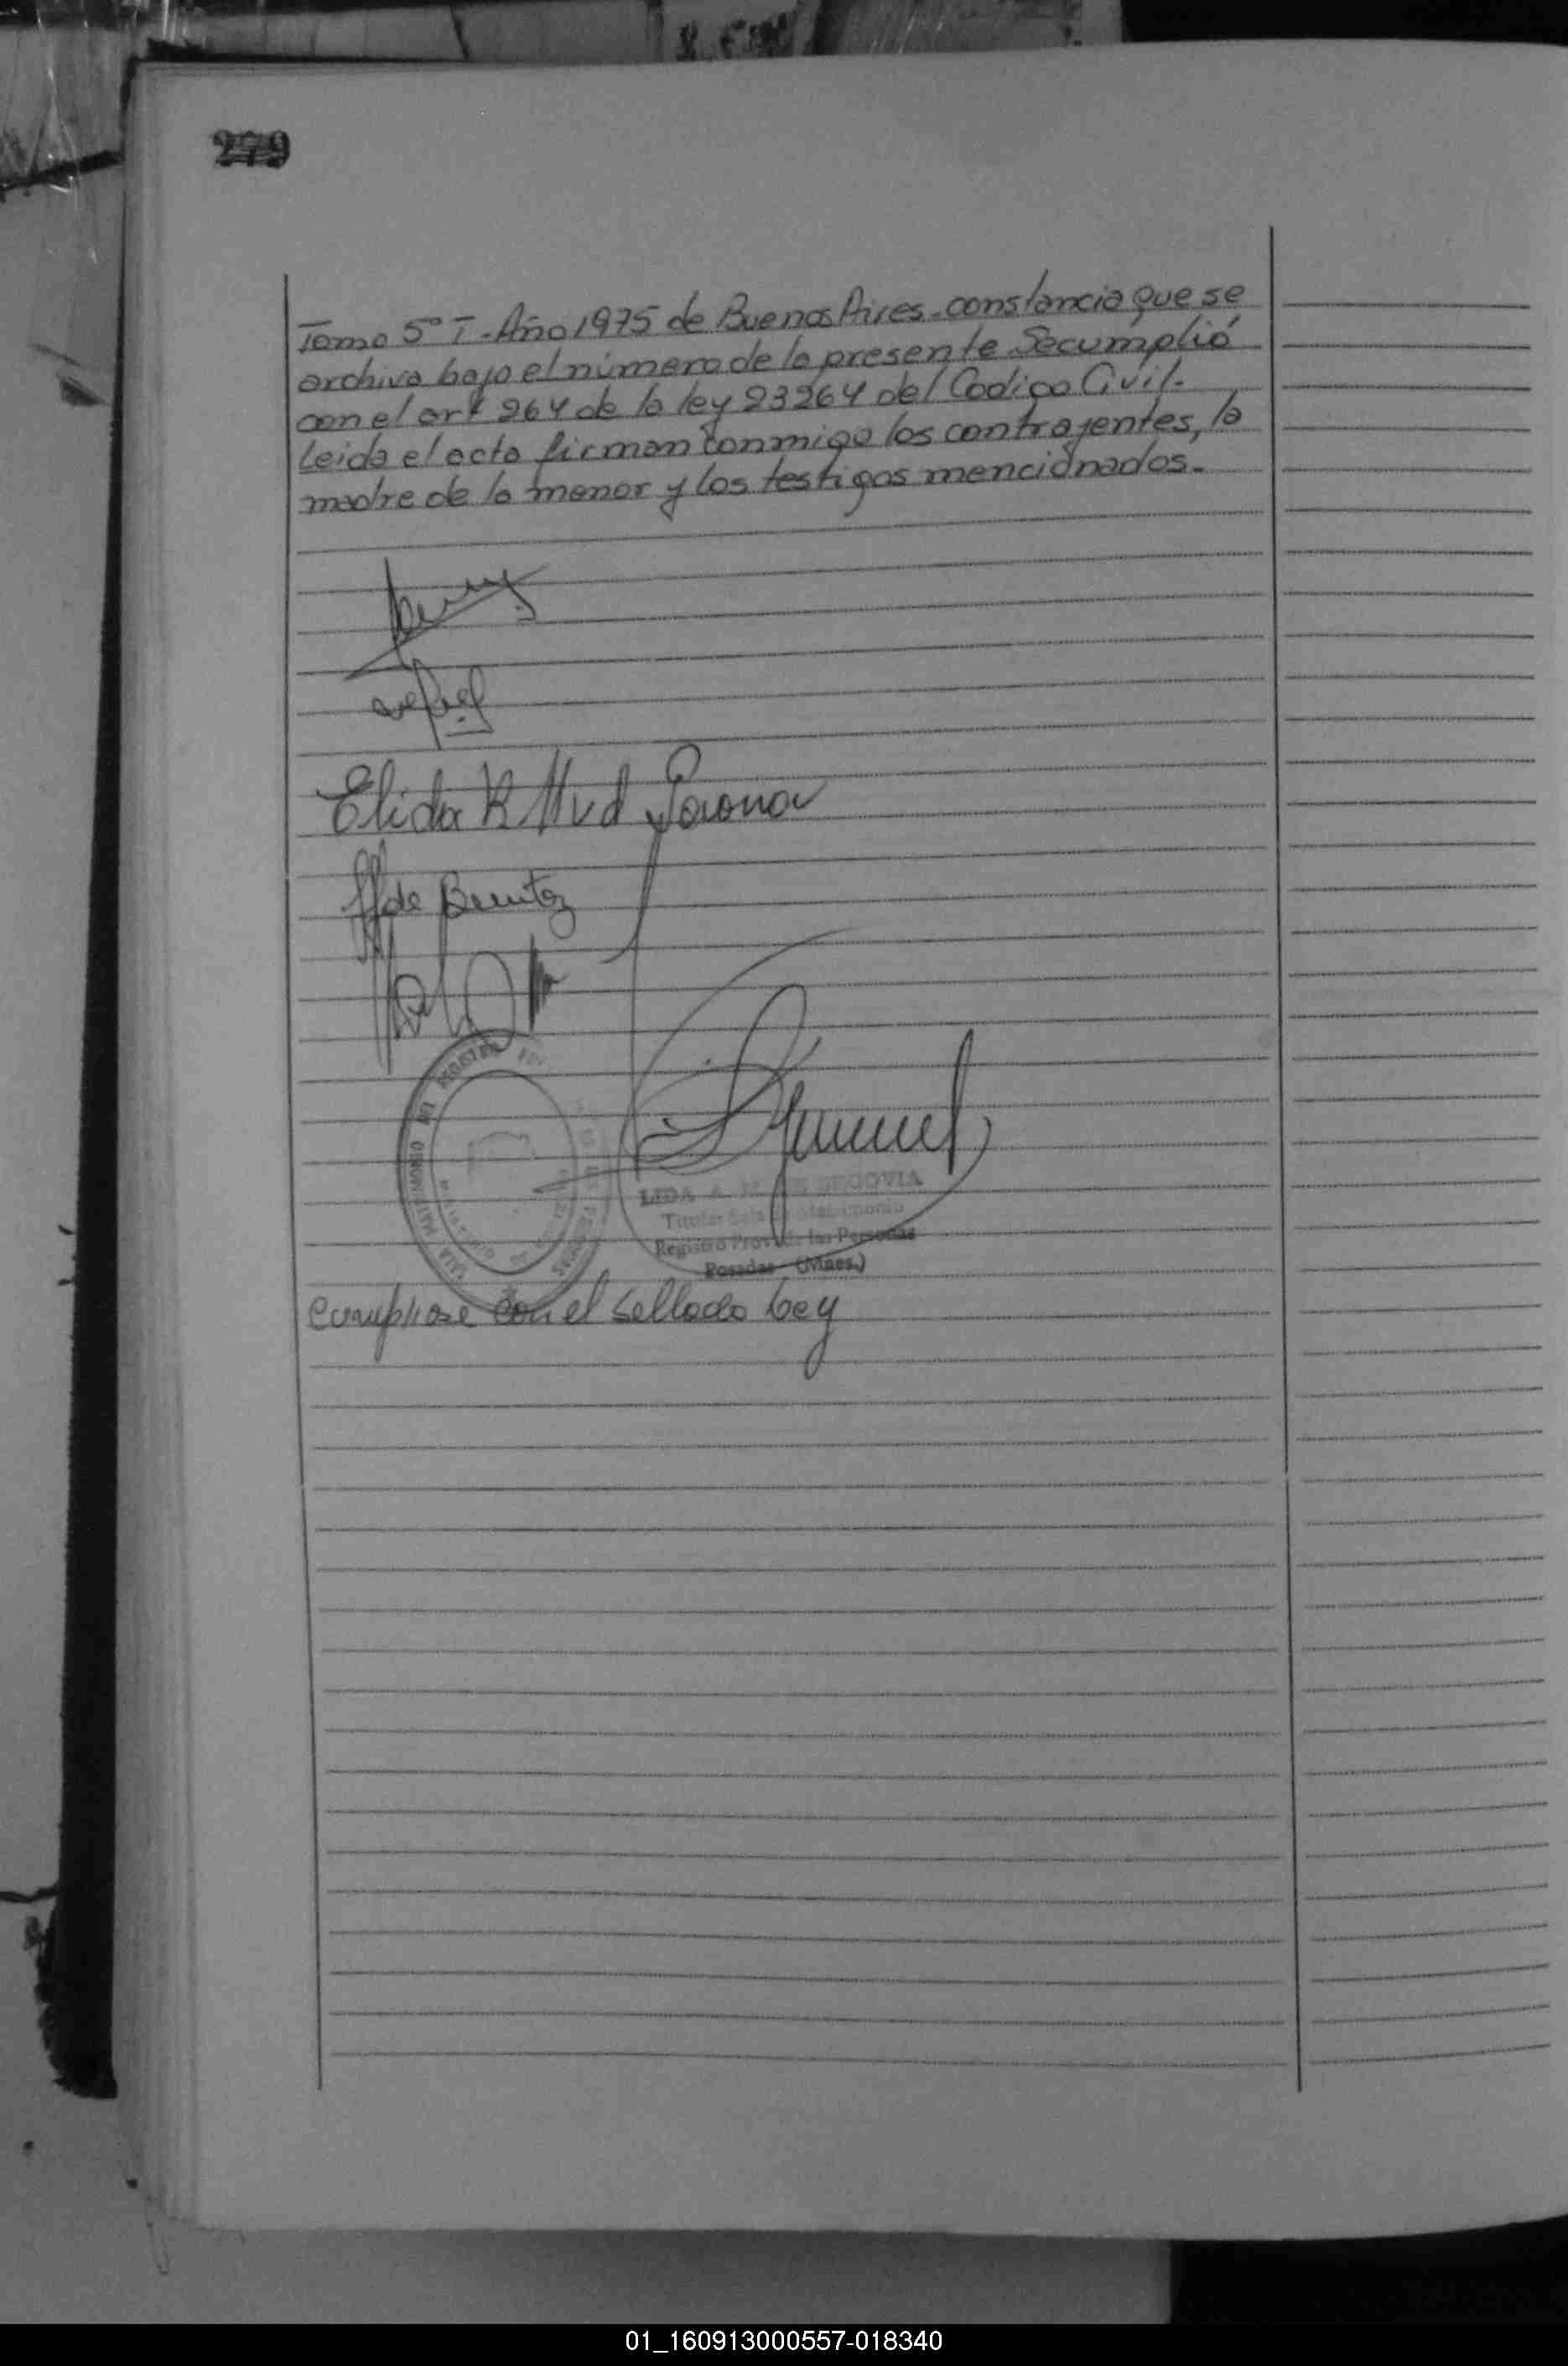 279
Tomo 5º I - Año 1975 de Buenos Aires. constancia que se
archiva bajo el número de la presente Se cumplió
con el art 264 de la ley 23264 del Codigo Civil.
Leida el acta firman conmigo los contrayentes, la
madre de la menor y los testigos mencionados.
Elida
de Benitez
SALA MATRIMONIO DEL REGISTRO
LIDA A. DE SEGOVIA
Titular Sala Matrimonio
Registro Prov. de las Personas
Posadas (Mnes.)
Cumpliose con el sellado Ley
01_160913000557-018340